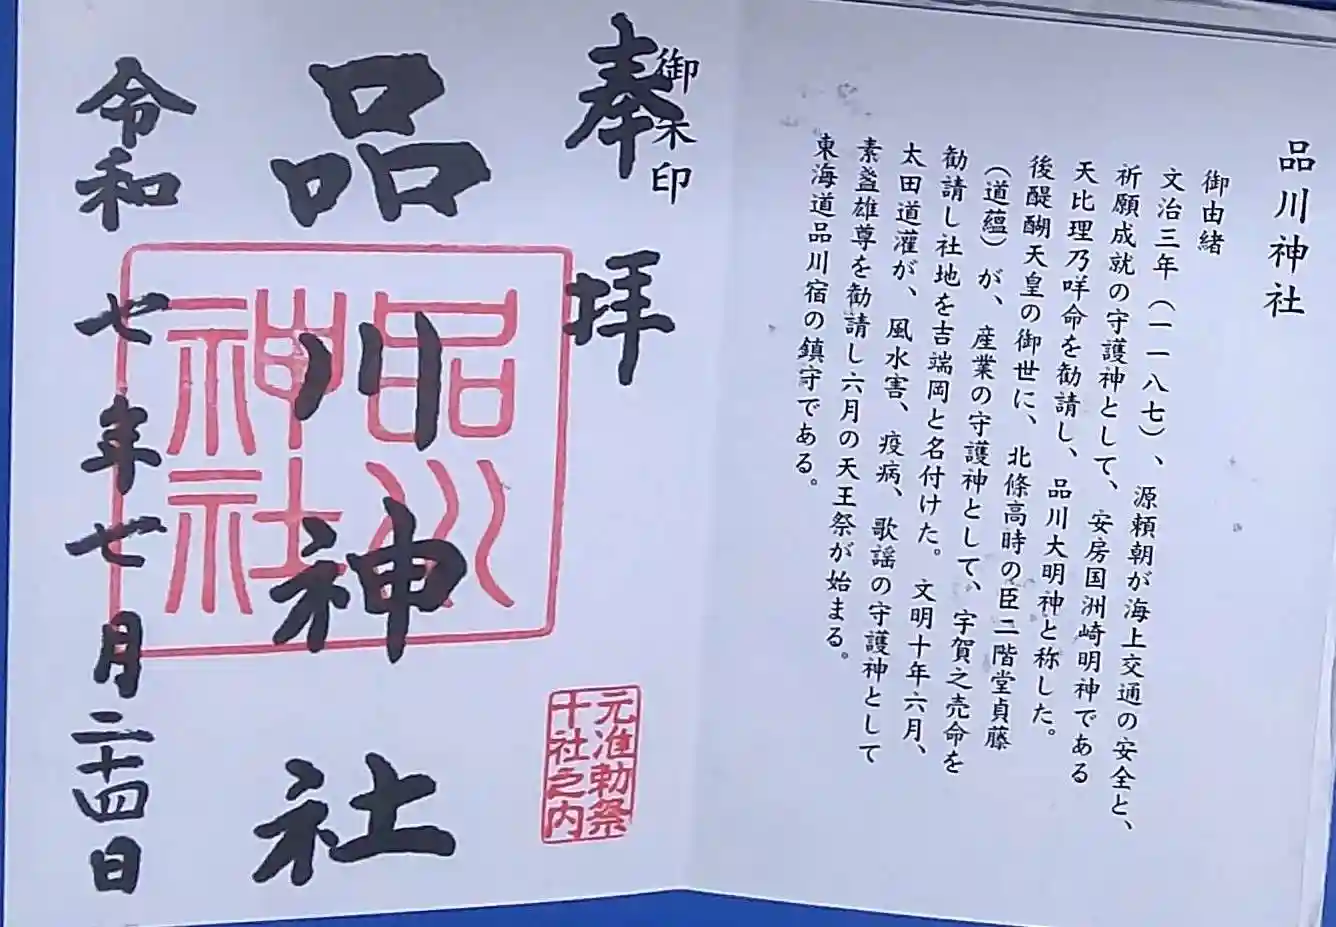 品川神社
御由緒
文治三年（一一八七）、源頼朝が海上交通の安全と、
祈願成就の守護神として、安房国洲崎明神である
天比理乃咩命を勧請し、品川大明神と称した。
後醍醐天皇の御世に、北條高時の臣二階堂貞藤
（道蘊）が、産業の守護神として、宇賀之売命を
勧請し社地を吉端岡と名付けた。文明十年六月、
太田道灌が、風水害、疫病、歌謡の守護神として
素盞雄尊を勧請し六月の天王祭が始まる。
東海道品川宿の鎮守である。
御朱印
奉拝
元准勅祭
十社之内
品川神社
品川
神社
令和七年七月二十四日